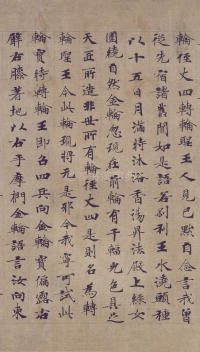 輪徑丈四轉輪聖王人見已默自念言我曾
從先宿諸舊聞如是語若剎利王水澆頭種
以十五日月滿時沐浴香湯昇法殿上婇女
圍繞自然金輪忽現在前輪有千輻光色具足
天匠所造非世所有輪徑丈四是則名為轉
輪聖王今此輪現將无是耶今我寧可試此
輪寶時轉輪王即召四兵向金輪寶偏露右
臂右膝著地以右手摩捫金輪語言汝向東